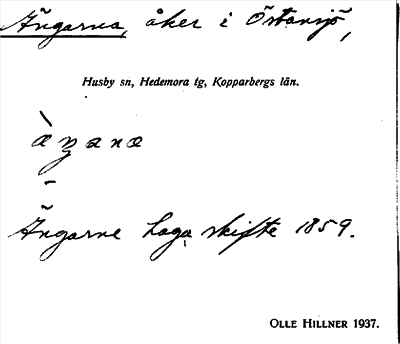 Ängarna, åker i Östansjö,
Husby sn, Hedemora tg, Kopparbergs län.
Ängarne Laga skifte 1859.
OLLE HILLNER 1937.